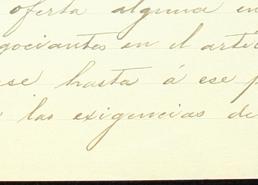 oferta alguna en
gociantes en el artí
se hasta á ese p
las exigencias de